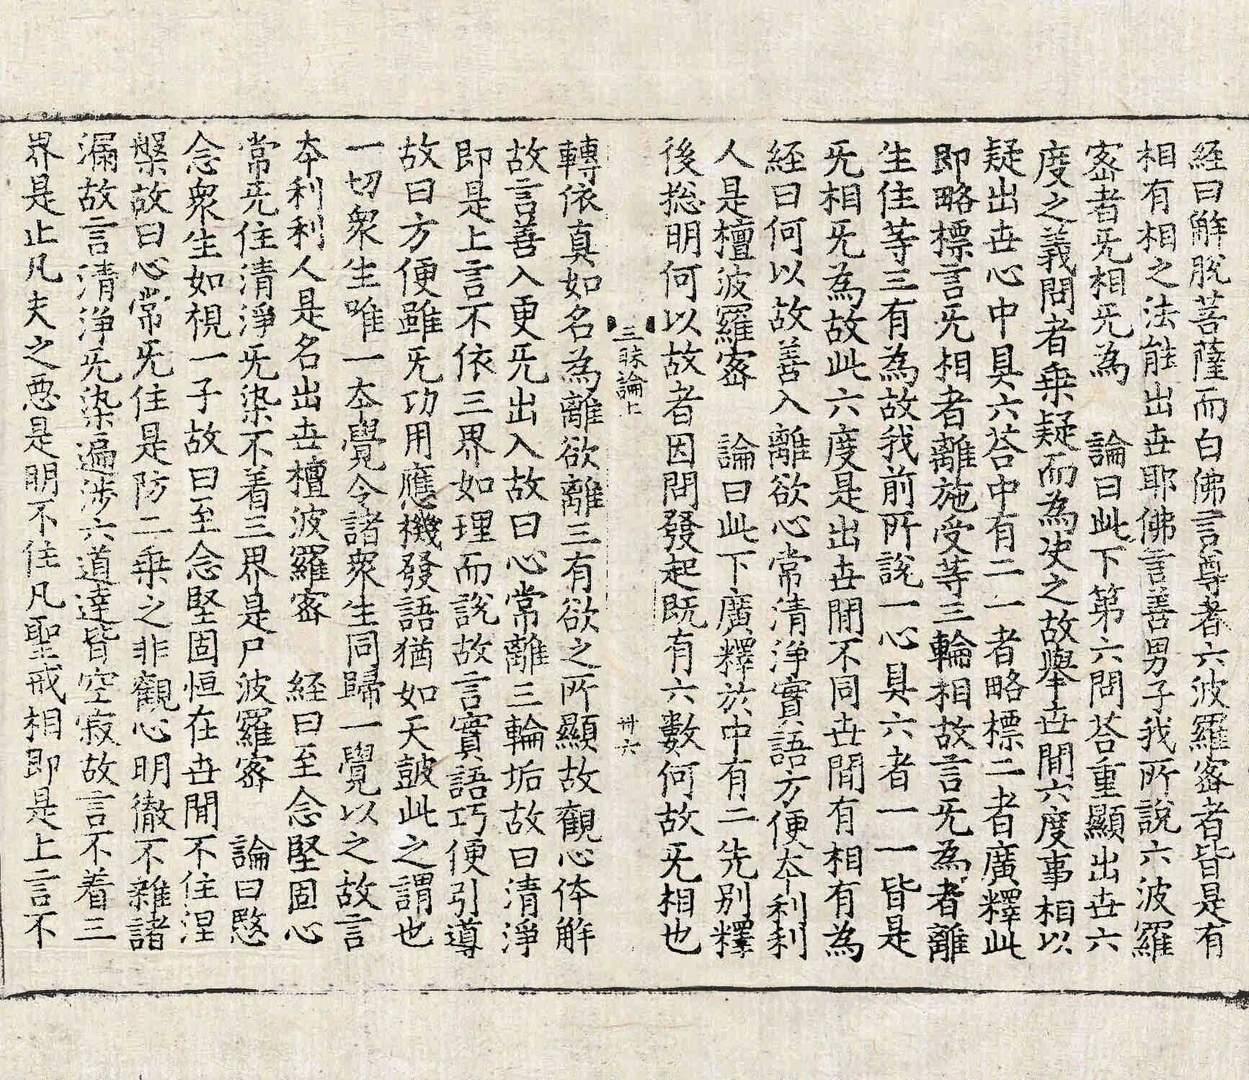 経曰解脫菩薩而白佛言尊者六波羅宻者皆是有
相有相之法能出丗耶佛言善男子我所說六波羅
宻者旡相旡為　論曰此下第六問荅重顯出丗六
度之義問者乗疑而為决之故舉丗間六度事相以
疑出丗心中具六荅中有二一者略標二者廣釋此
即略標言旡相者離施受等三輪相故言旡為者離
生住等三有為故我前所說一心具六者一一皆是
旡相旡為故此六度是出丗間不同丗間有相有為
経曰何以故善入離欲心常清淨實語方便夲利利
人是檀波羅宻　論曰此下廣釋於中有二先別釋
後捴明何以故者因問發起既有六數何故旡相也
三昧論上　卅六
轉依真如名為離欲離三有欲之所顯故觀心体解
故言善入更旡出入故曰心常離三輪垢故曰清淨
即是上言不依三界如理而說故言實語巧便引導
故曰方便雖旡功用應機發語猶如天皷此之謂也
一切衆生唯一夲覺令諸衆生同歸一覺以之故言
夲利利人是名出丗檀波羅宻　経曰至念堅固心
常旡住清淨旡染不着三界是尸波羅宻　論曰愍
念衆生如視一子故曰至念堅固恒在丗間不住涅
槃故曰心常旡住是防二乗之非觀心明徹不雜諸
漏故言清淨旡染遍涉六道達皆空寂故言不着三
界是止凡夫之悪是明不住凡聖戒相即是上言不